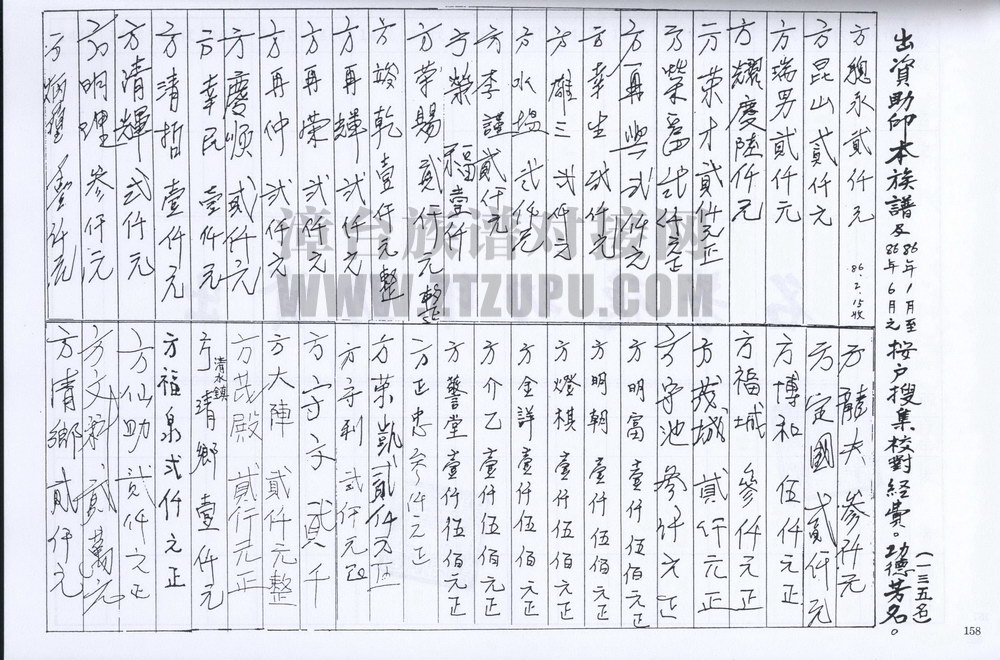 出資助印本族譜及86年1月至86年6月之按户搜集校對經費。功德芳名。(一三五名)
方總永貳仟元
86.2.15收
方昆山貳仟元
方瑞男貳仟元
方耀慶陸仟元
方荣才貳仟元正
方榮 貳仟元正
方再興弍仟元
方幸生弍仟元
方雄三弍仟元
方水塭弍仟元
方李謹貳仟元
方榮福壹仟
方荣賜貳仟元整
方竣乾壹仟元整
方再輝弍仟元
方再荣弍仟元
方再仲弍仟元
方慶順貳仟元
方幸民壹仟元
方清哲壹仟元
方清輝弍仟元
方明理参仟元
方炳 壹仟元
方龍夫參仟元
方定國貳仟元
方博和伍仟元正
方福城參仟元正
方茂城貳仟元正
方守池參仟元正
方明富壹仟伍佰元正
方明朝壹仟伍佰元正
方燈棋壹仟伍佰元正
方金詳壹仟伍佰元正
方介乙壹仟伍佰元正
方警堂壹仟伍佰元正
方正忠参仟元正
方荣凱貳仟元正
方守利弍仟元正
方守文貳千
方大陣貳仟元整
方茂殿貳仟元正
清水鎮
方靖鄉壹仟元
方福泉弍仟元正
方仙助貳仟元正
方文 貳萬元
方清鄉貳仟元
漳台族谱对接网
WWW.ZTZUPU.COM
158